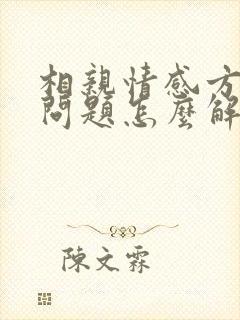 相親情感方
問題怎麼解
陳文霖